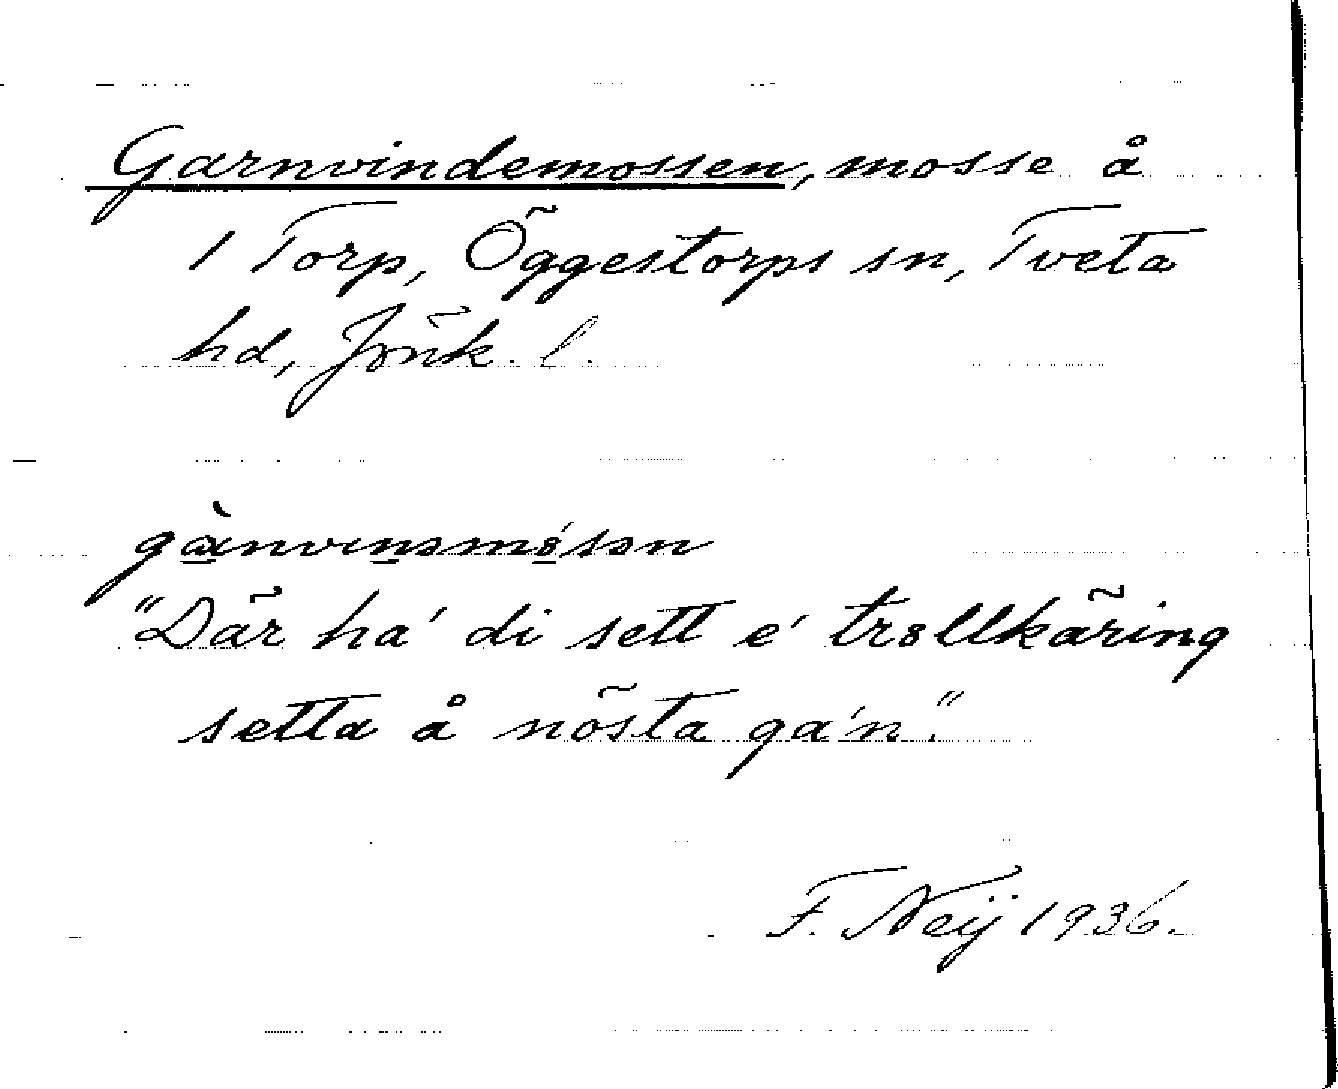 Garnvindemossen, mosse å
1 Torp, Öggestorps sn, Tveta
hd, Jönk. l.
"Där ha' di sett e' trollkäring
setta å nösta ga'n".
F. Neij 1936.